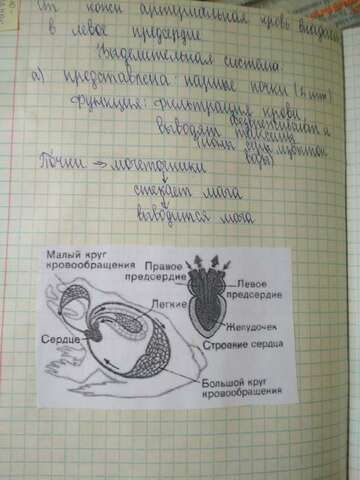 От кожи артериальная кровь впадает
в левое предсердие
Выделительная система:
а) представлена: парные почки (2шт)
функция: фильтрация крови,
обезвреживают и
выводят
воды)
Почки → мочеточники
стекает моча
выводится моча
Малый круг
кровообращения
Правое
предсердие
Левое
предсердие
Легкие
Желудочек
Сердце
Строение сердца
Большой круг
кровообращения